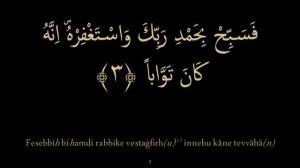 فَسَبِّحْ بِحَمْدِ رَبِّكَ وَاسْتَغْفِرْهُۜ اِنَّهُ
كَانَ تَوَّاباً ﴿٣﴾
Fesebbih bi hamdi rabbike vestaġfirh(u)(c) innehu kâne tevvâbâ(n)
3